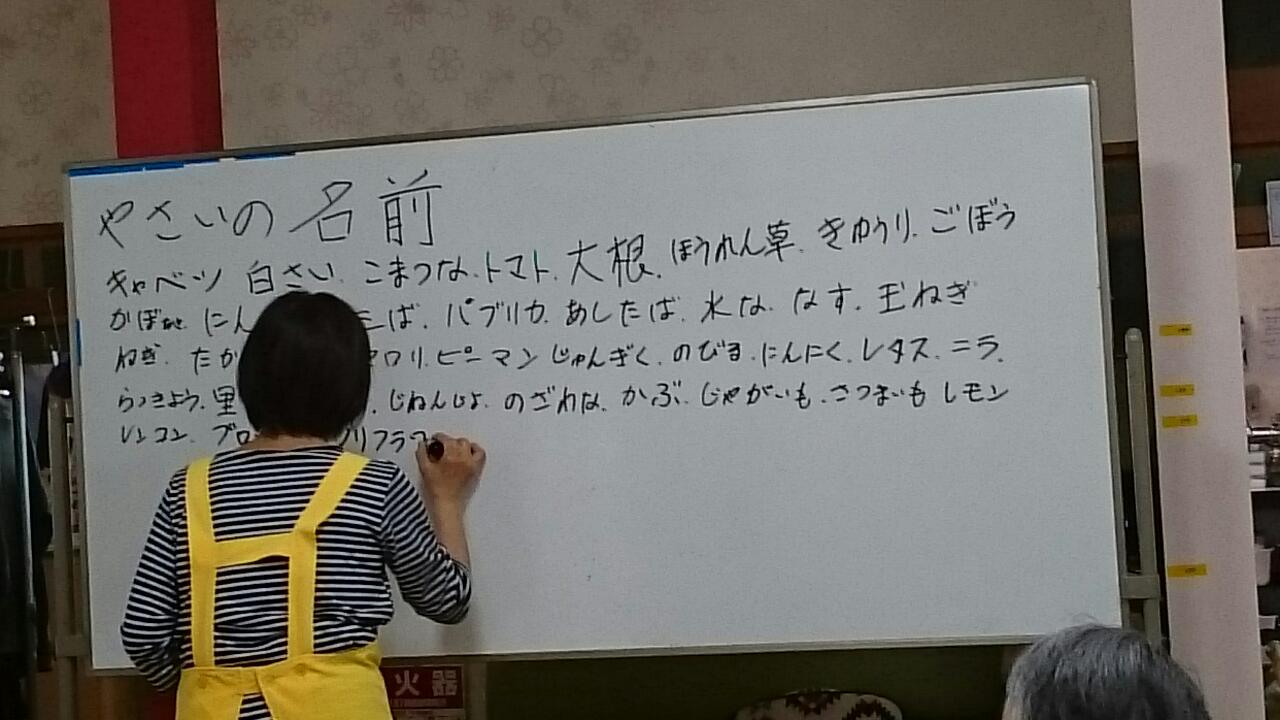 やさいの名前
キャベツ 白さい. こまつな. トマト. 大根. ほうれん草. きゅうり. ごぼう
かぼちゃ. にん ば. パプリカ. あしたば. 水な. なす. 玉ねぎ
ねぎ. たか ロリ. ピーマン じゅんぎく. のびる. にんにく. レタス. ニラ.
らっきょう. 里 . じねんじょ. のざわな. かぶ. じゃがいも. さつまいも レモン
レンコン. ブロ リフラワ
火器